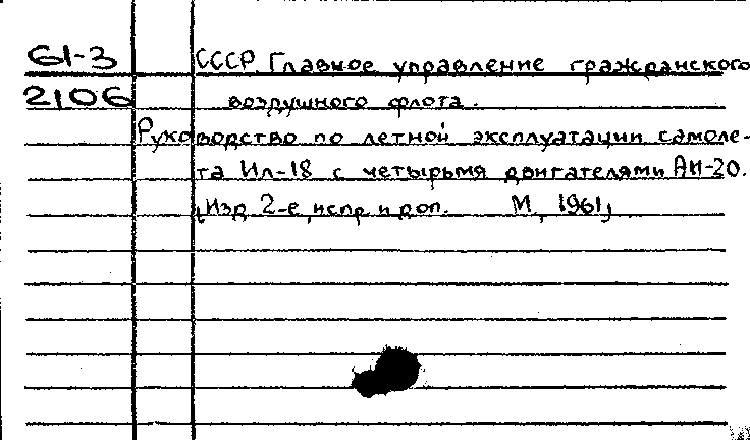 61-3 СССР. Главное управление гражданского
2106 воздушного флота.
Руководство по летной эксплуатации самоле-
та Ил-18 с четырьмя двигателями АИ-20.
Изд 2-е, испр. и доп. М., 1961,